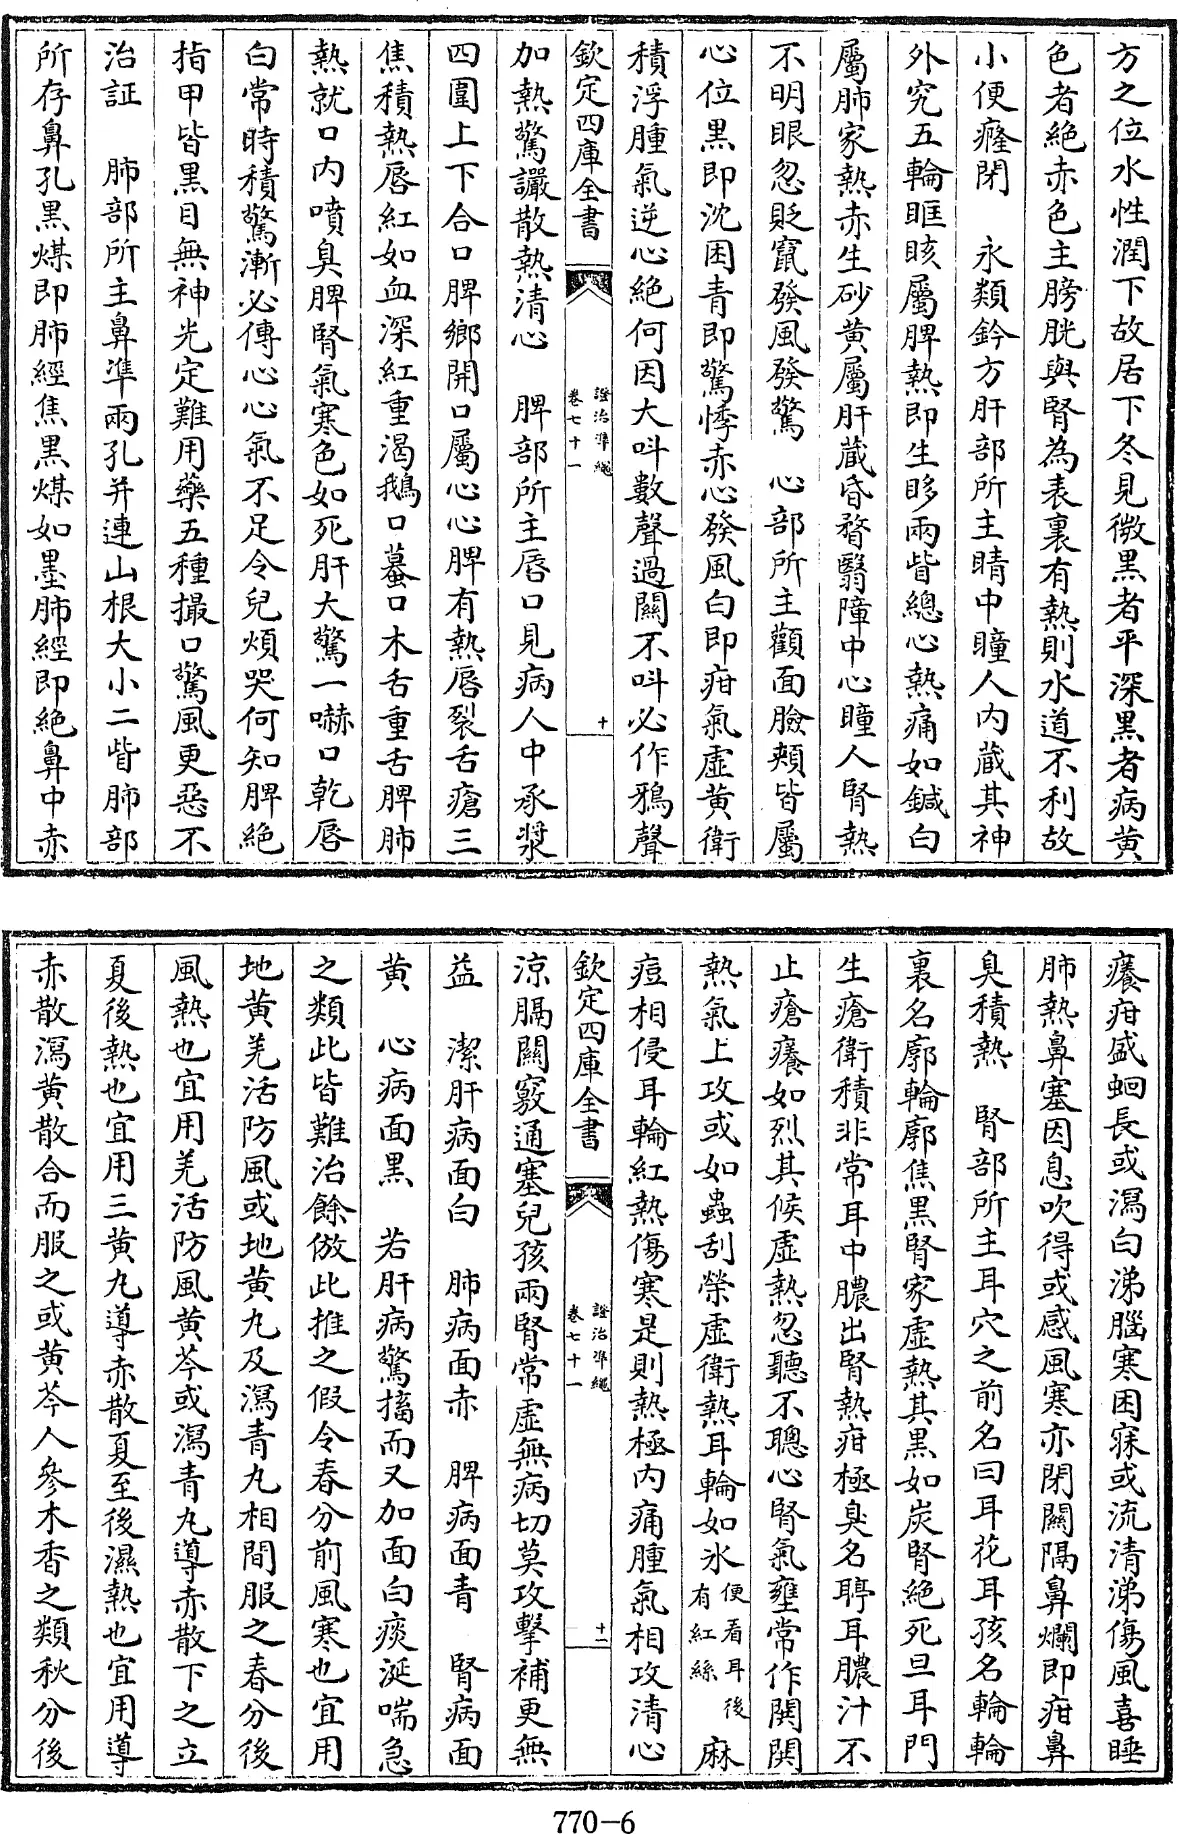 方之位水性潤下故居下冬見微黑者平深黑者病黃
色者絕赤色主膀胱與腎為表裏有熱則水道不利故
小便癃閉　永類鈐方肝部所主睛中瞳人內藏其神
外究五輪眶䀭屬脾熱即生眵兩眥總心熱痛如鍼白
屬肺家熱赤生砂黃屬肝藏昏瞀翳障中心瞳人腎熱
不明眼忽貶竄發風發驚　心部所主顴面臉頰皆屬
心位黑即沈困青即驚悸赤心發風白即疳氣虛黃衛
積浮腫氣逆心絕何因大呌數聲過關不呌必作鴉聲
欽定四庫全書
證治準繩
卷七十一
十
加熱驚讝散熱清心　脾部所主唇口見病人中承漿
四圍上下合口脾鄉開口屬心心脾有熱唇裂舌瘡三
焦積熱唇紅如血深紅重渴鵝口蟇口木舌重舌脾肺
熱就口內噴臭脾腎氣寒色如死肝大驚一嚇口乾唇
白常時積驚漸必傳心心氣不足令兒煩哭何知脾絕
指甲皆黑目無神光定難用藥五種撮口驚風更惡不
治証　肺部所主鼻準兩孔并連山根大小二眥肺部
所存鼻孔黑煤即肺經焦黑煤如墨肺經即絕鼻中赤
癢疳盛蛔長或瀉白涕腦寒困寐或流清涕傷風喜睡
肺熱鼻塞因息吹得或感風寒亦閉關隔鼻爛即疳鼻
臭積熱　腎部所主耳穴之前名曰耳花耳孩名輪輪
裏名廓輪廓焦黑腎家虛熱其黑如炭腎絕死旦耳門
生瘡衛積非常耳中膿出腎熱疳極臭名聤耳膿汁不
止瘡癢如烈其候虛熱忽聽不聰心腎氣壅常作関関
熱氣上攻或如蟲刮榮虛衛熱耳輪如氷便看耳後有紅絲麻
痘相侵耳輪紅熱傷寒是則熱極內痛腫氣相攻清心
欽定四庫全書
證治準繩
卷七十一
十一
涼膈關竅通塞兒孩兩腎常虛無病切莫攻擊補更無
益　潔肝病面白　肺病面赤　脾病面青　腎病面
黃　心病面黑　若肝病驚搐而又加面白痰涎喘急
之類此皆難治餘倣此推之假令春分前風寒也宜用
地黃羌活防風或地黃丸及瀉青丸相間服之春分後
風熱也宜用羌活防風黃芩或瀉青丸導赤散下之立
夏後熱也宜用三黃丸導赤散夏至後濕熱也宜用導
赤散瀉黃散合而服之或黃芩人參木香之類秋分後
770-6